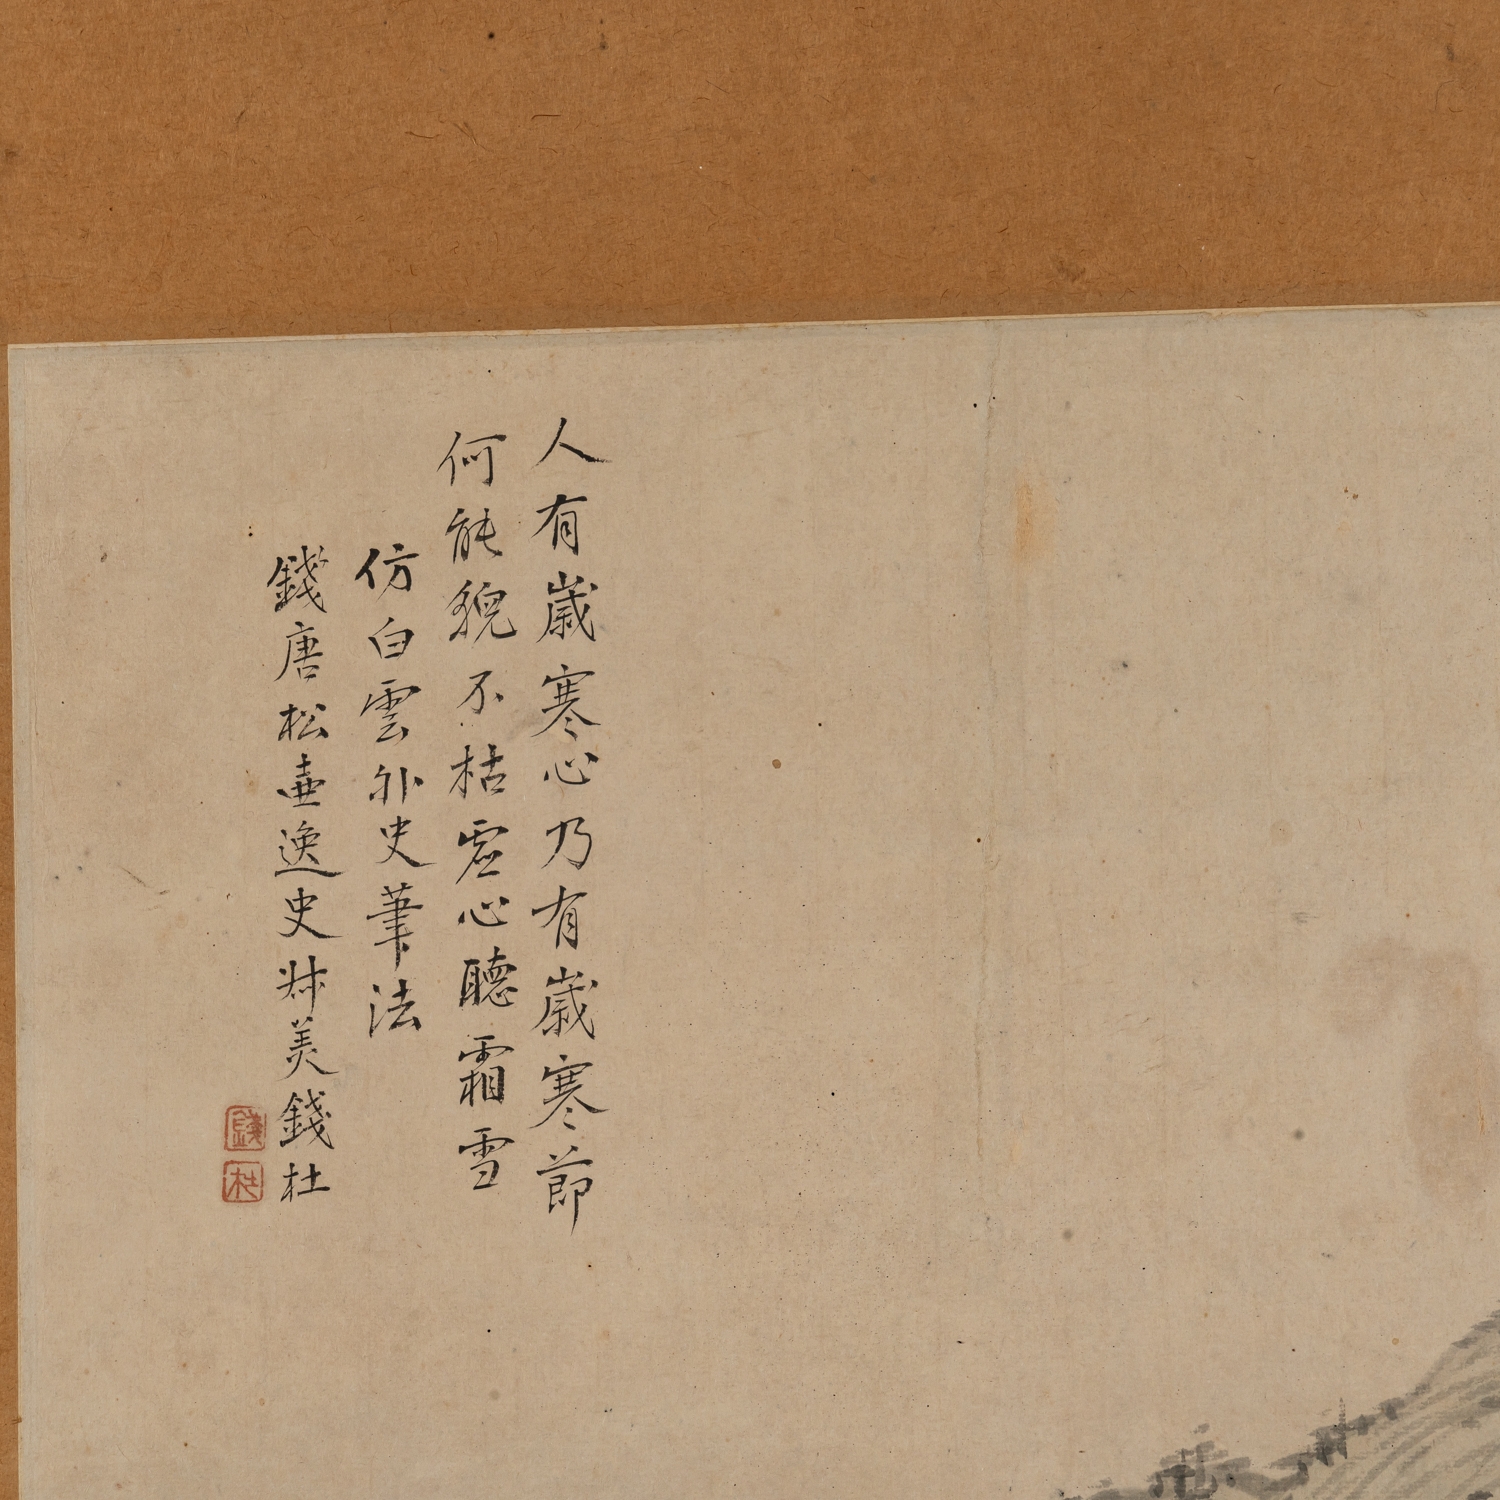 人有歲寒心乃有歲寒節
何能貌不枯虛心聽霜雪
仿白雲外史筆法
錢唐松壺逸史尗美錢杜
錢
杜